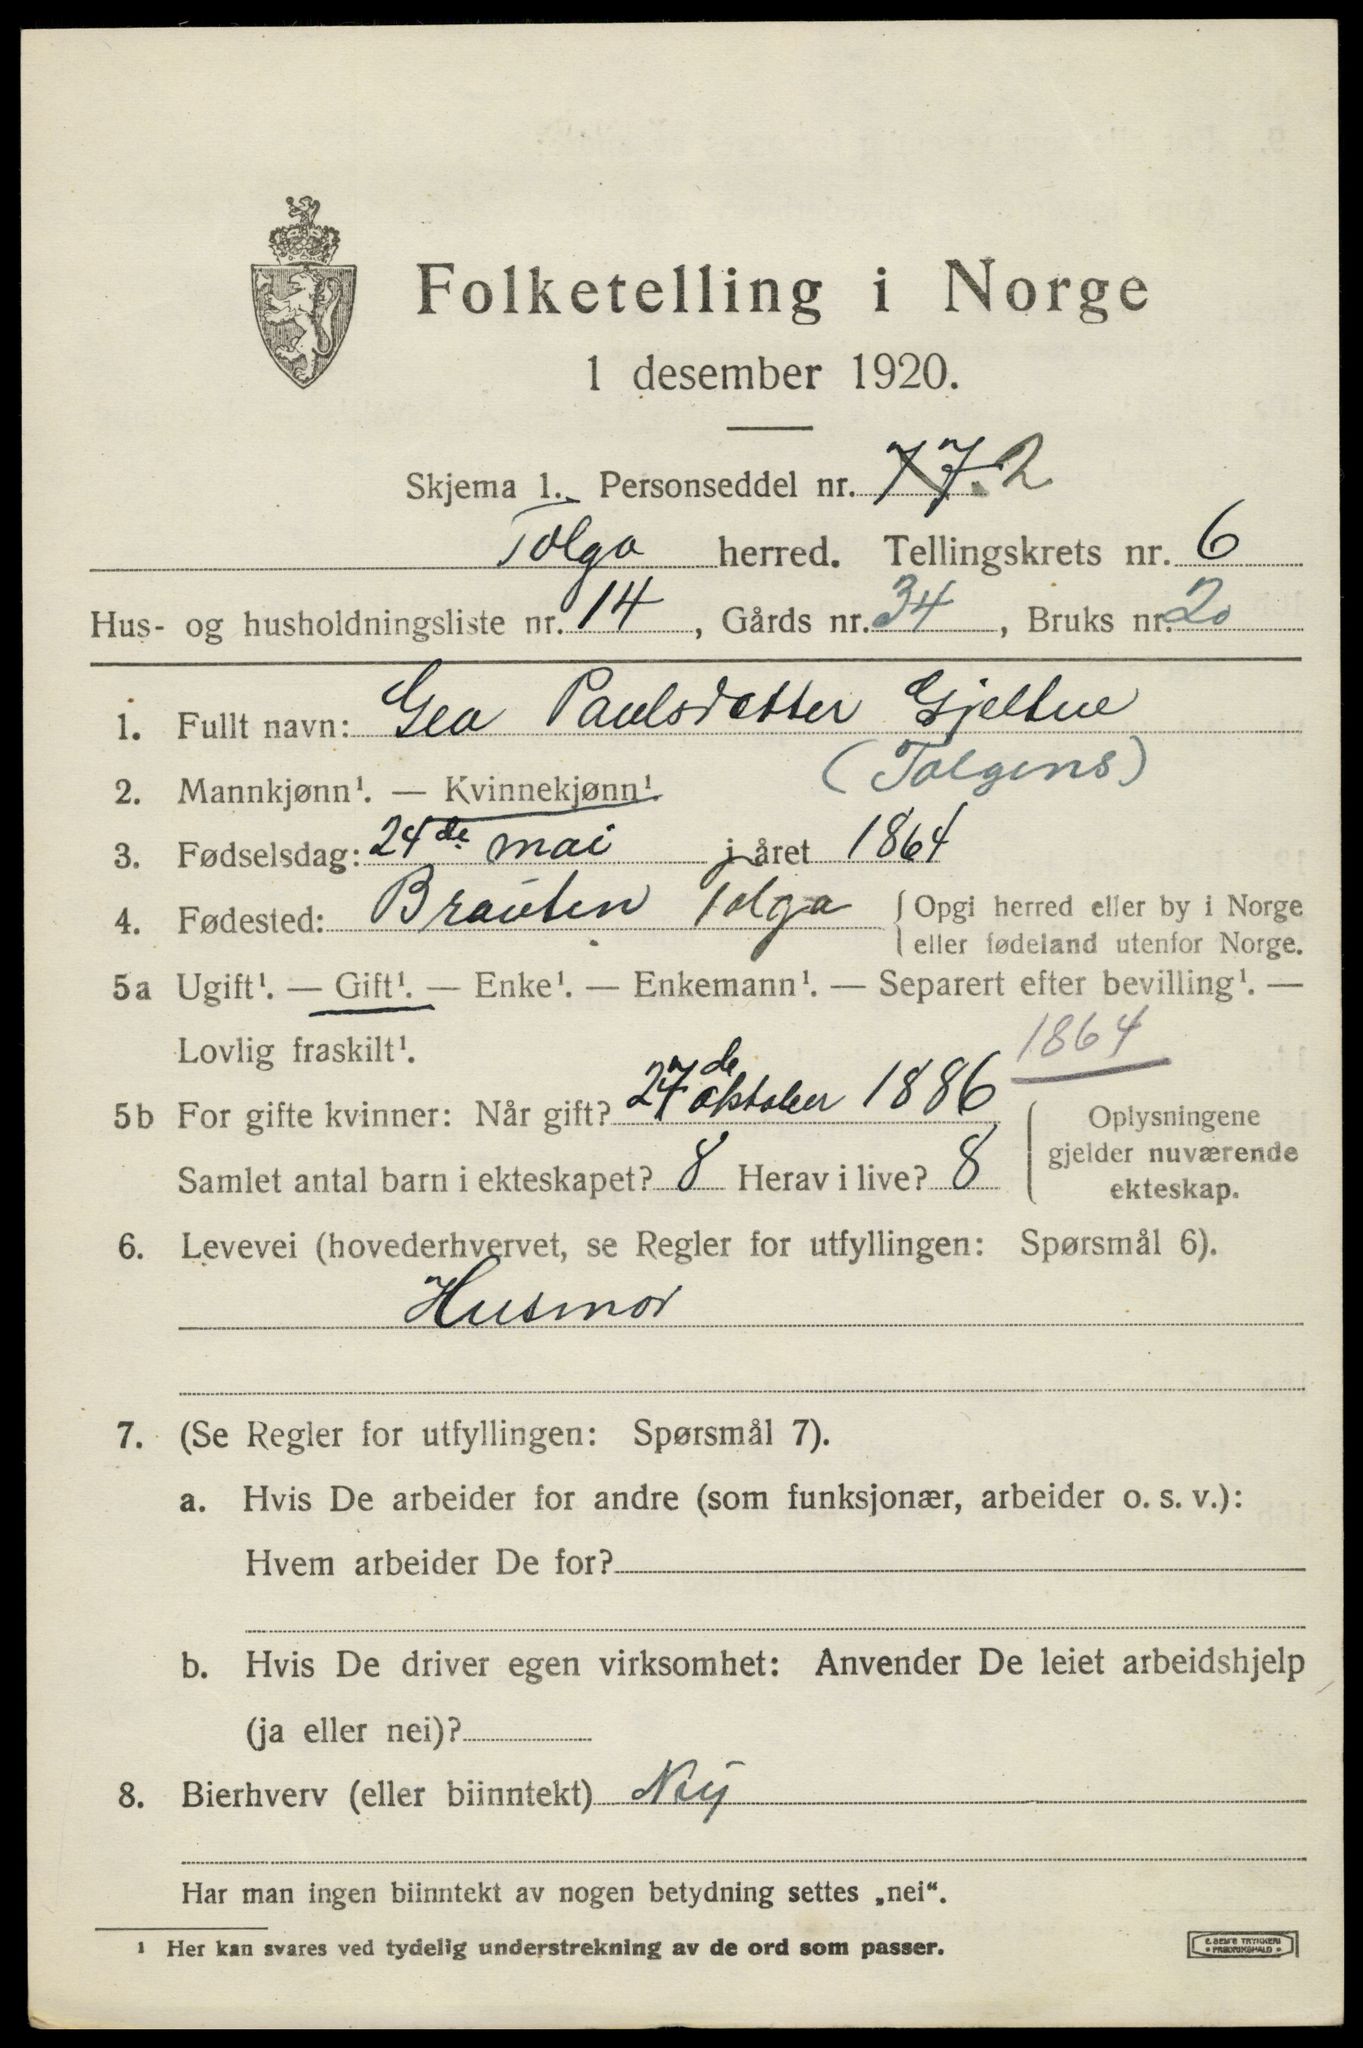 Folketelling i Norge
1 desember 1920.
Skjema 1. Personseddel nr. 77.2
Tolga herred. Tellingskrets nr. 6
Hus- og husholdningsliste nr. 14, Gårds nr. 34, Bruks nr. 20
1. Fullt navn: Gea Paulsdatter Gjeltne
(Tolgens)
2. Mannkjønn¹. — Kvinnekjønn¹
3. Fødselsdag: 24de mai i året 1864
4. Fødested: Brauten Tolga { Opgi herred eller by i Norge
eller fødeland utenfor Norge.
5a Ugift¹. — Gift¹. — Enke¹. — Enkemann¹. — Separert efter bevilling¹. —
Lovlig fraskilt¹. 1864
5b For gifte kvinner: Når gift? 27de oktober 1886 { Oplysningene
gjelder nuværende
Samlet antal barn i ekteskapet? 8 Herav i live? 8 ekteskap.
6. Levevei (hovederhvervet, se Regler for utfyllingen: Spørsmål 6).
Husmor
7. (Se Regler for utfyllingen: Spørsmål 7).
a. Hvis De arbeider for andre (som funksjonær, arbeider o. s. v.):
Hvem arbeider De for?
b. Hvis De driver egen virksomhet: Anvender De leiet arbeidshjelp
(ja eller nei)?
8. Bierhverv (eller biinntekt) Neij
Har man ingen biinntekt av nogen betydning settes „nei“.
¹ Her kan svares ved tydelig understrekning av de ord som passer.
E. SEM'S TRYKKERI
• FREDRIKSHALD •